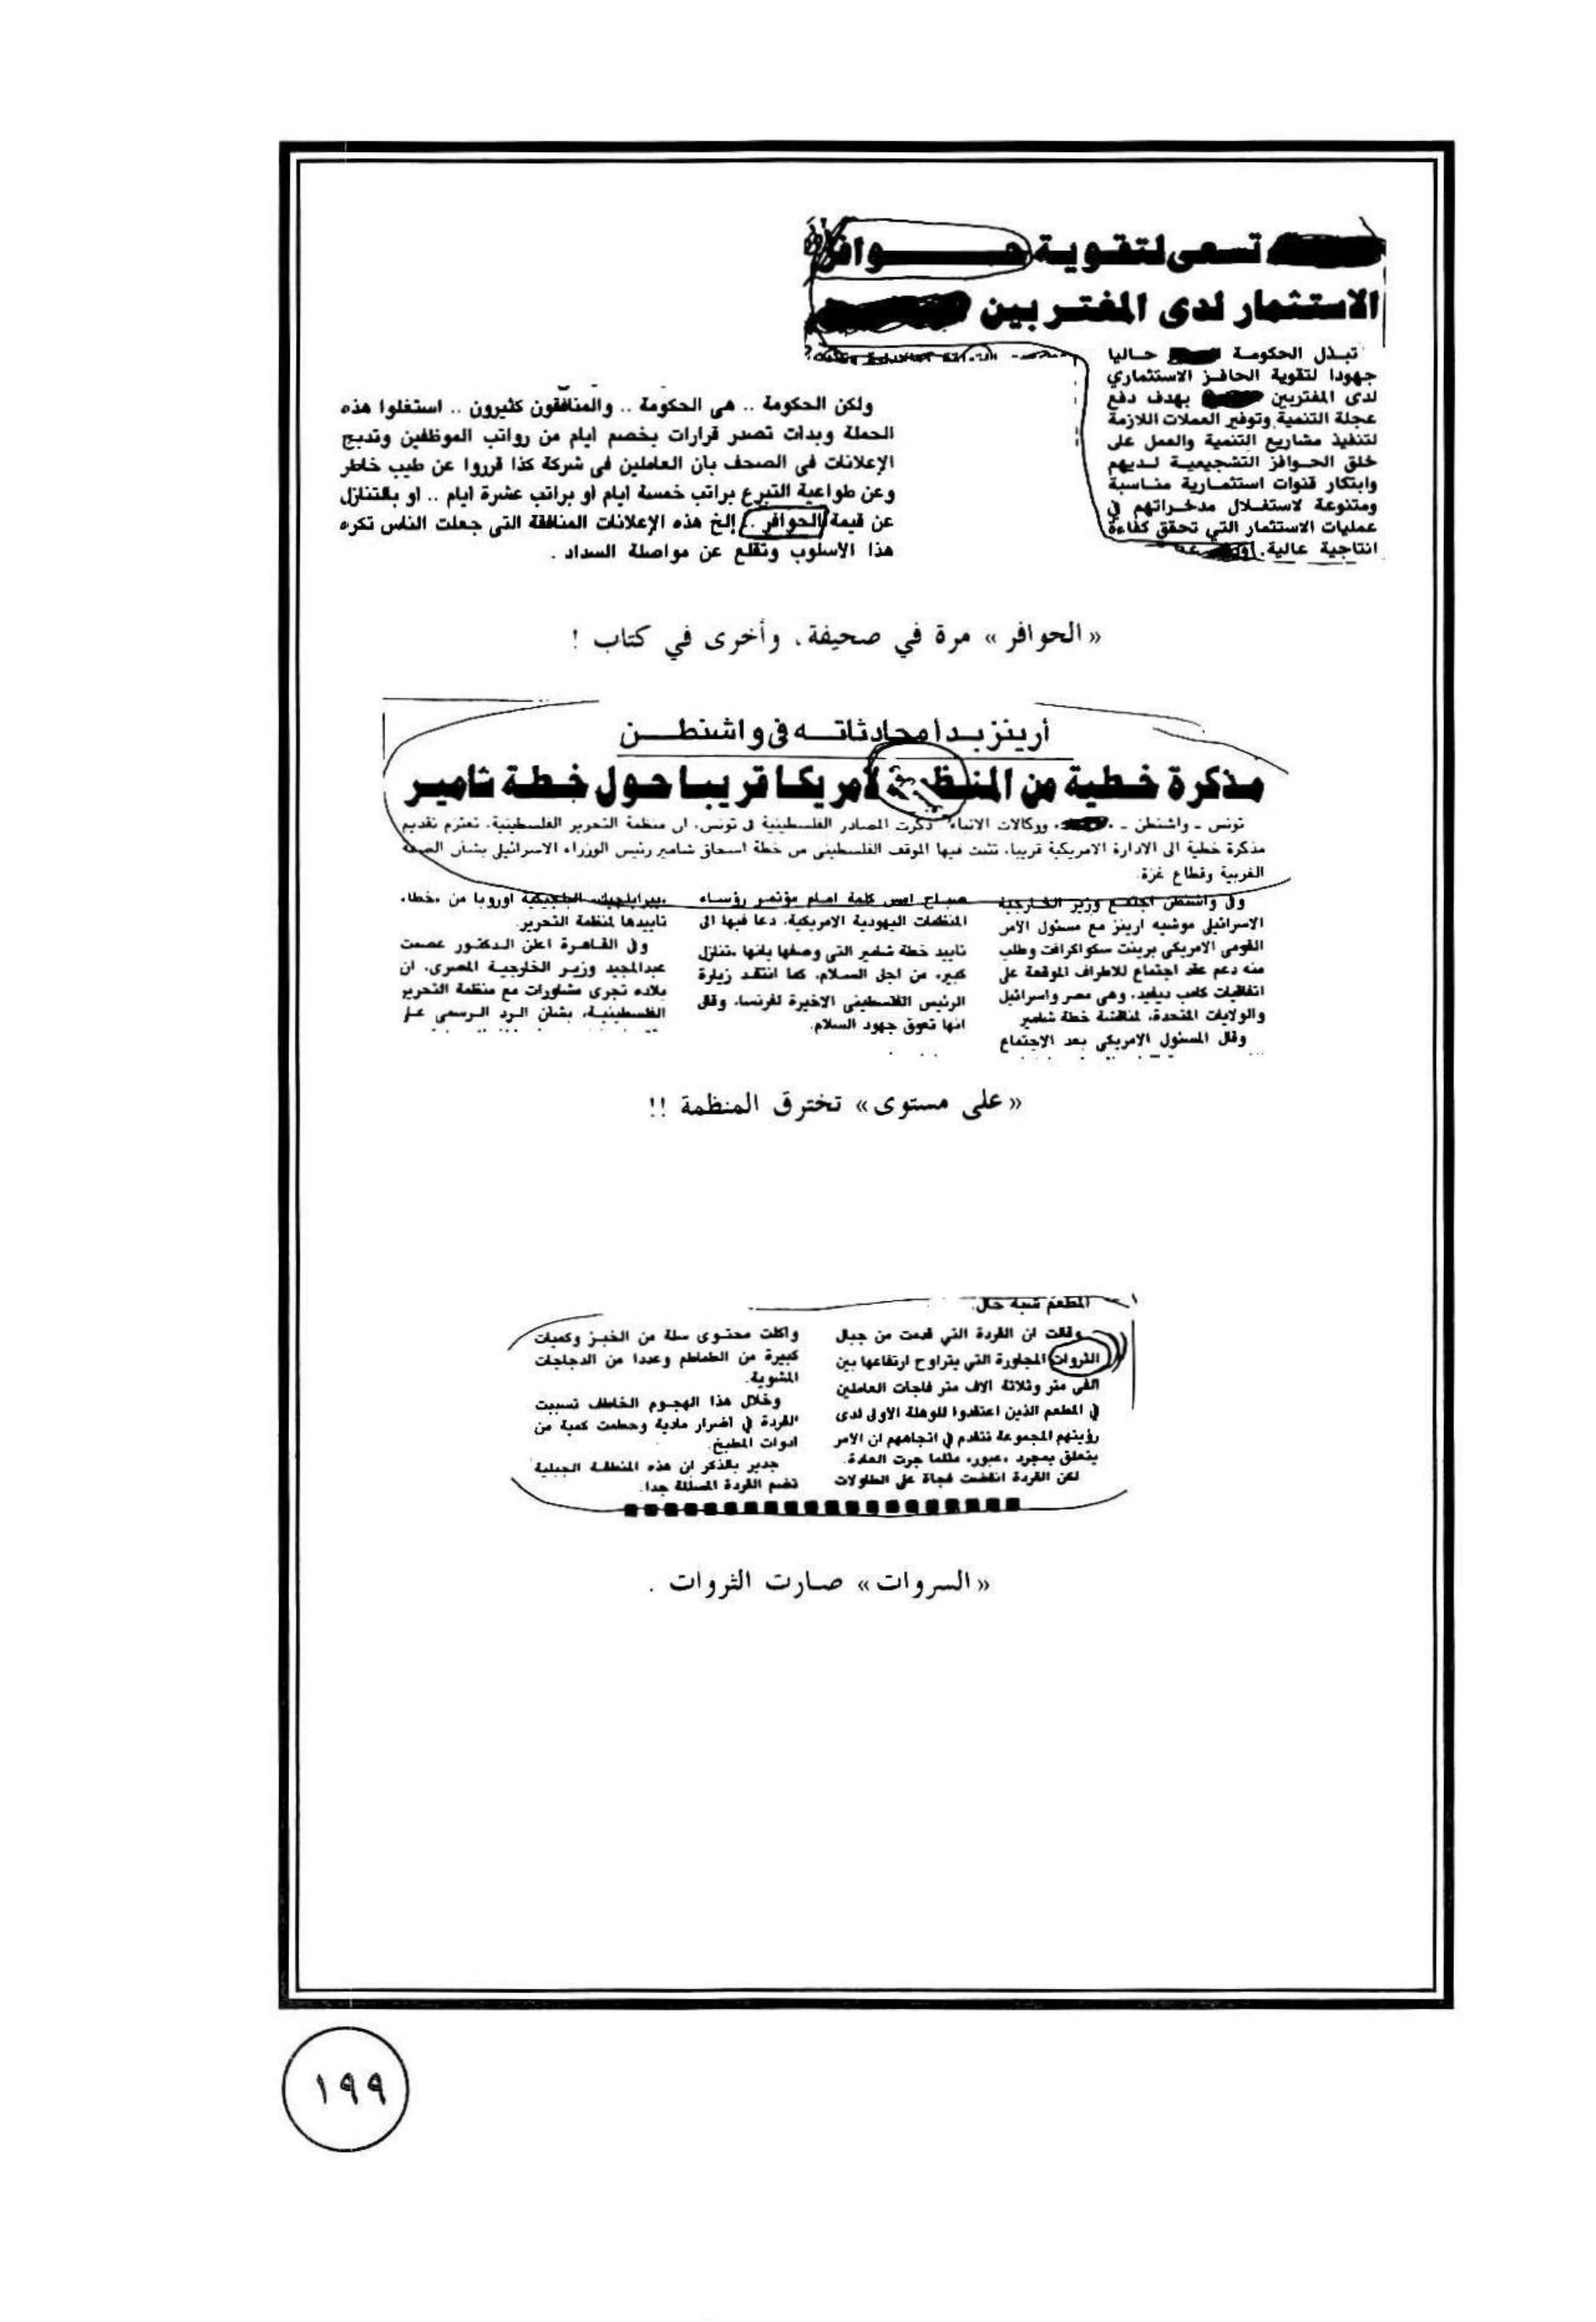 تسعى لتقوية حـــوافر
الاستثمار لدى المغتربين
تبذل الحكومة حاليا
جهودا لتقوية الحافز الاستثماري
لدى المغتربين بهدف دفع
عجلة التنمية وتوفير العملات اللازمة
لتنفيذ مشاريع التنمية والعمل على
خلق الحوافز التشجيعية لديهم
وابتكار قنوات استثمارية مناسبة
ومتنوعة لاستغلال مدخراتهم في
عمليات الاستثمار التي تحقق كفاءة
انتاجية عالية.
ولكن الحكومة .. هى الحكومة .. والمنافقون كثيرون .. استغلوا هذه
الحملة وبدات تصدر قرارات بخصم ايام من رواتب الموظفين وتدبج
الإعلانات فى الصحف بان العاملين فى شركة كذا قرروا عن طيب خاطر
وعن طواعية التبرع براتب خمسة ايام او براتب عشرة ايام .. او بالتنازل
عن قيمة الحوافر .. إلخ هذه الإعلانات المنافقة التى جعلت الناس تكره
هذا الأسلوب وتقلع عن مواصلة السداد .
« الحوافر » مرة في صحيفة، وأخرى في كتاب !
أرينز يبدأ محادثاته فى واشنطن
مذكرة خطية من المنظمة لأمريكا قريبا حول خطة شامير
تونس - واشنطن - ووكالات الانباء: ذكرت المصادر الفلسطينية فى تونس، ان منظمة التحرير الفلسطينية، تعتزم تقديم
مذكرة خطية الى الادارة الامريكية قريبا، تثبت فيها الموقف الفلسطينى من خطة اسحاق شامير رئيس الوزراء الاسرائيلى بشأن الضفة
الغربية وقطاع غزة.
وفى واشنطن اجتمع وزير الخارجية
الاسرائيلى موشيه ارينز مع مسئول الامن
القومى الامريكى برينت سكواكرافت وطلب
منه دعم عقد اجتماع للاطراف الموقعة على
اتفاقيات كامب ديفيد، وهى مصر واسرائيل
والولايات المتحدة، لمناقشة خطة شامير
وقال المسئول الامريكى بعد الاجتماع
صباح امس كلمة امام مؤتمر رؤساء
المنظمات اليهودية الامريكية، دعا فيها الى
تاييد خطة شامير التى وصفها بانها «تنازل
كبير» من اجل السلام، كما انتقد زيارة
الرئيس الفلسطينى الاخيرة لفرنسا، وقال
انها تعوق جهود السلام.
البلجيكية اوروبا من «خطا»
تاييدها لمنظمة التحرير.
وفى القاهرة اعلن الدكتور عصمت
عبدالمجيد وزير الخارجية المصرى، ان
بلاده تجرى مشاورات مع منظمة التحرير
الفلسطينية، بشان الرد الرسمى على
« على مستوى » تخترق المنظمة !!
المطعم شبه خال.
وقالت ان القردة التي قدمت من جبال
الثروات المجاورة التي يتراوح ارتفاعها بين
الفي متر وثلاثة الاف متر فاجات العاملين
في المطعم الذين اعتقدوا للوهلة الاولى لدى
رؤيتهم المجموعة تتقدم في اتجاههم ان الامر
يتعلق بمجرد «عبور» مثلما جرت العادة.
لكن القردة انقضت فجاة على الطاولات
واكلت محتوى سلة من الخبز وكميات
كبيرة من الطماطم وعددا من الدجاجات
المشوية.
وخلال هذا الهجوم الخاطف تسببت
القردة في اضرار مادية وحطمت كمية من
ادوات المطبخ.
جدير بالذكر ان هذه المنطقة الجبلية
تضم القردة المسللة جدا.
« السروات » صارت الثروات .
١٩٩